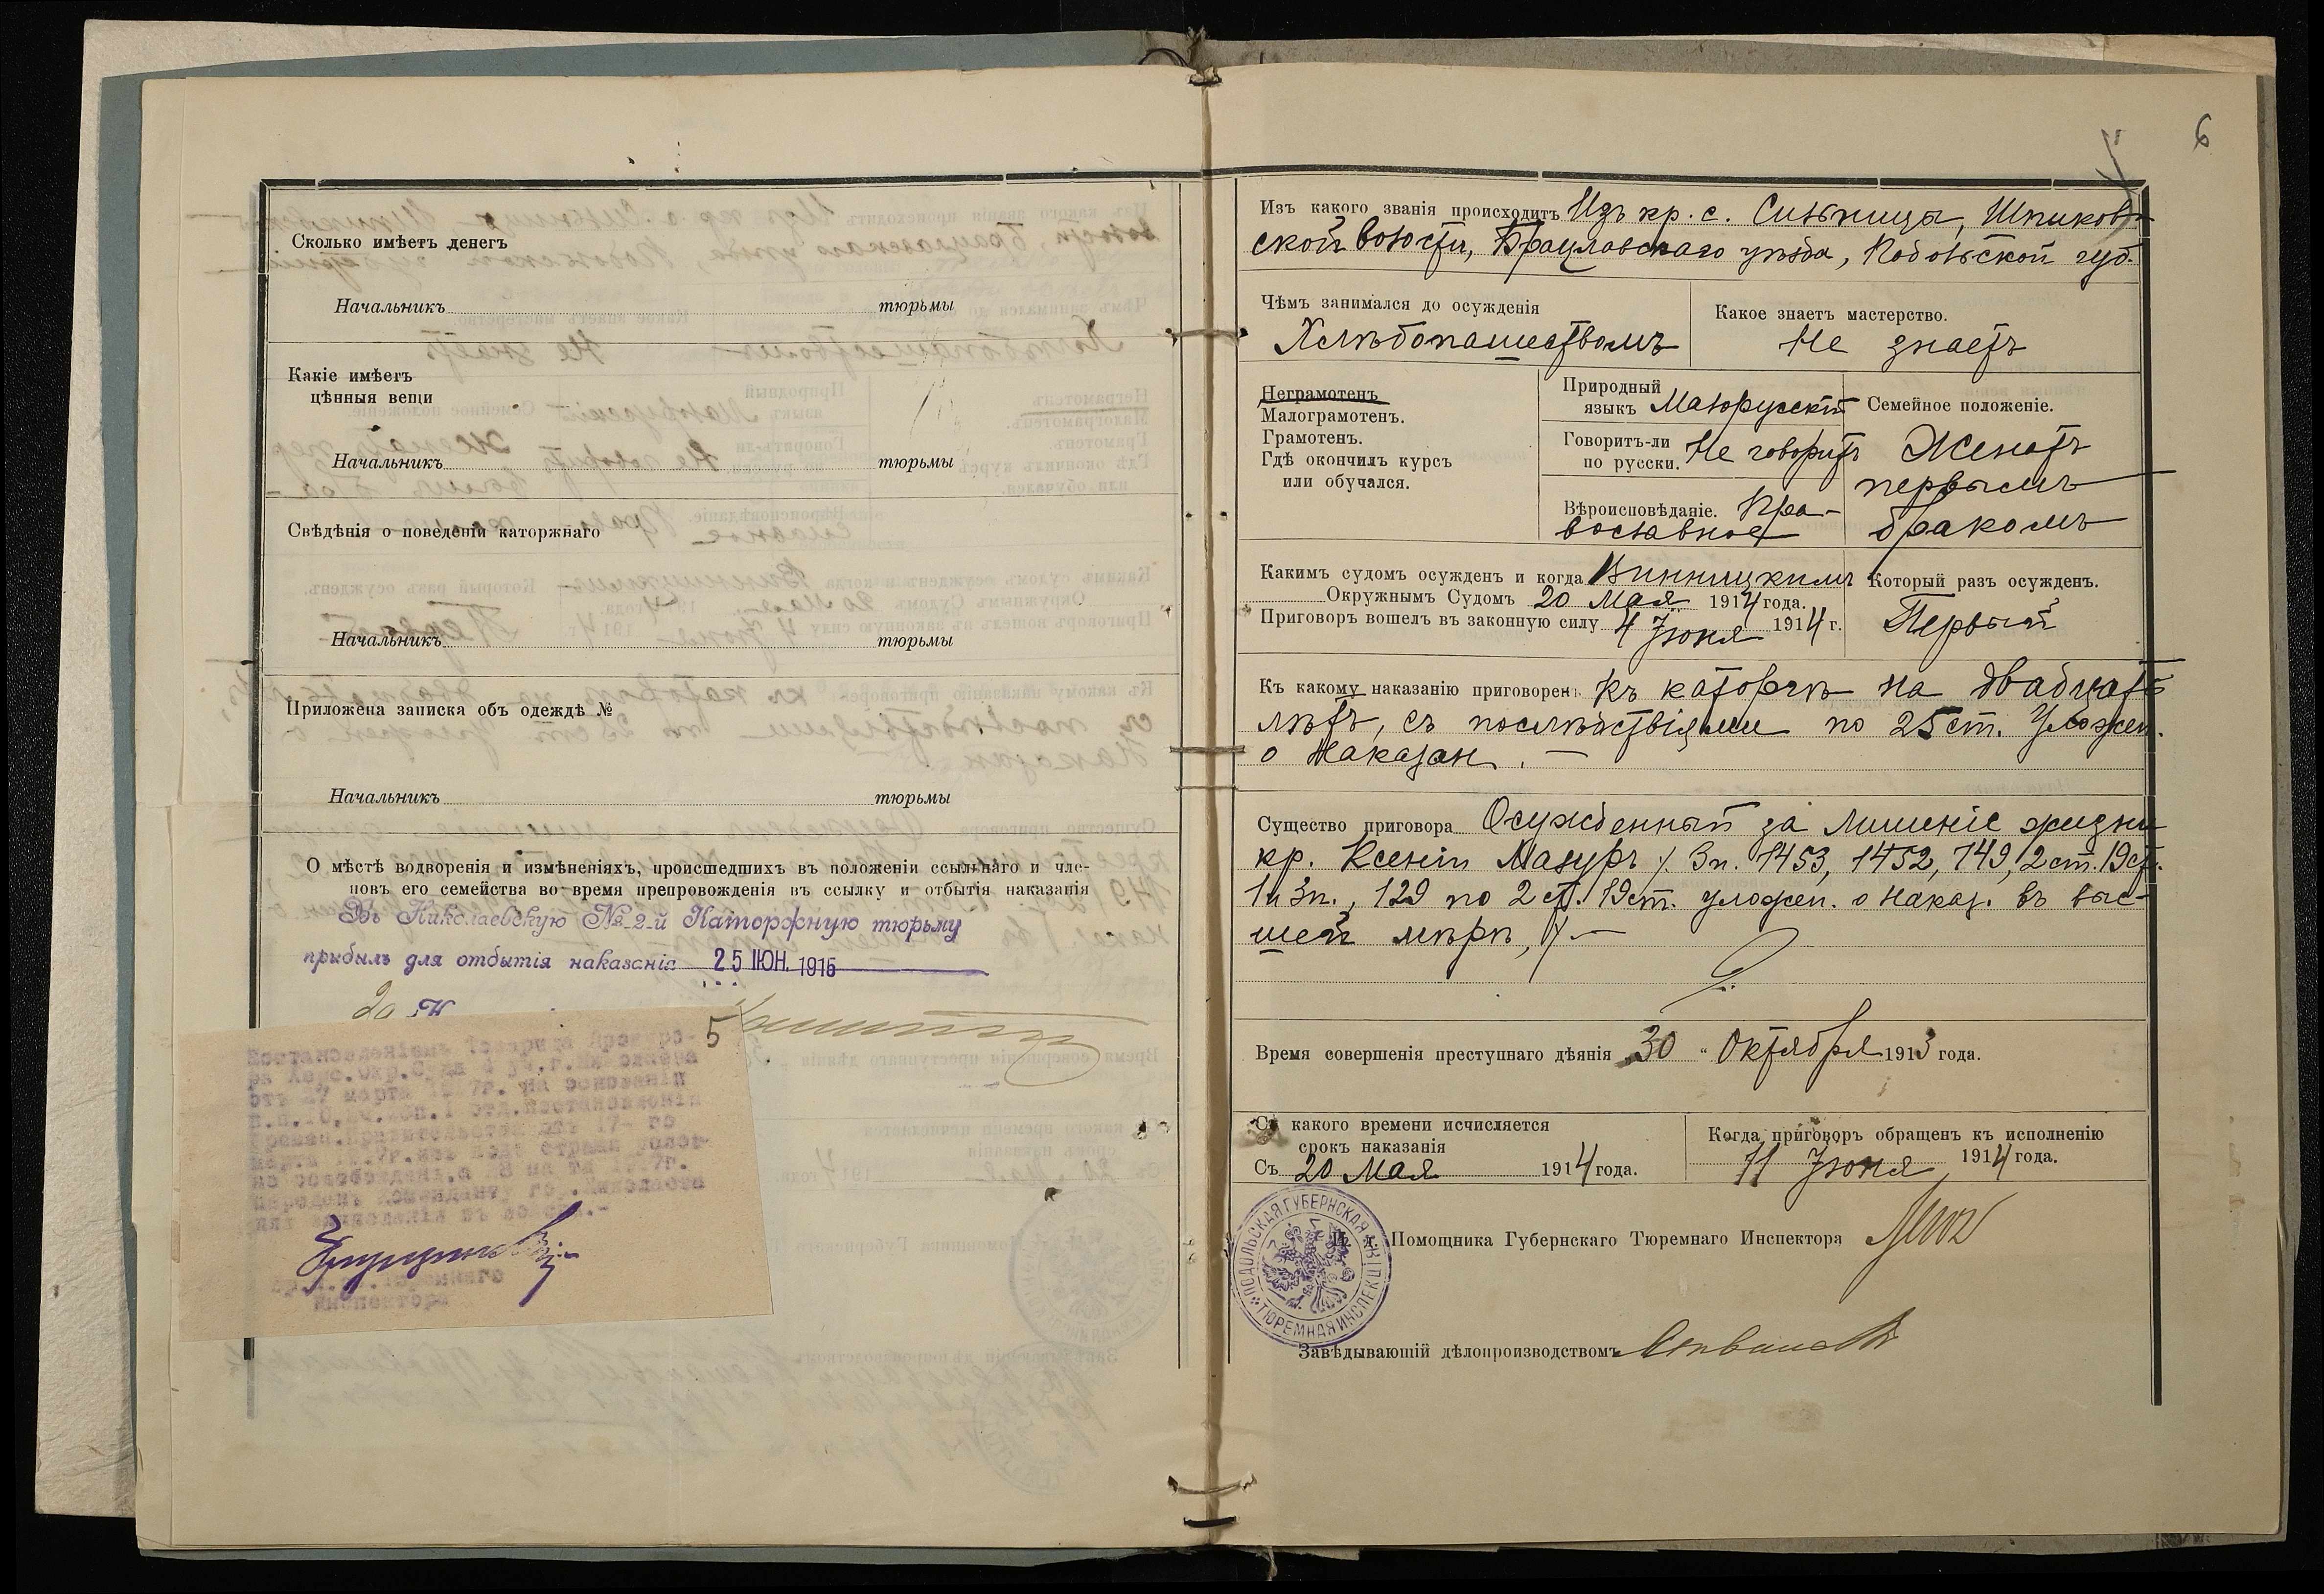 Сколько имѣетъ денегъ
Начальникъ тюрьмы
Какіе имѣетъ
цѣнныя вещи
Начальникъ тюрьмы
Свѣдѣнія о поведеніи каторжнаго
Начальникъ тюрьмы
Приложена записка объ одеждѣ №
Начальникъ тюрьмы
О мѣстѣ водворенія и измѣненіяхъ, происшедшихъ въ положеніи ссыльнаго и чле-
новъ его семейства во время препровожденія въ ссылку и отбытія наказанія
Въ Николаевскую № 2-й Каторжную тюрьму
прибылъ для отбытія наказанія 25 ІЮН. 1915
5
Постановленіемъ Товарища Прокуро-
ра Херс. Окр. Суда
отъ 27 марта на основаніи
Постановленія
Времен. Правительства отъ 17-го
марта изъ подъ стражи
освобожденъ, а
переданъ коменданту гор. Николаева
Тюремнаго
Инспектора
6
Изъ какого званія происходитъ Изъ кр. с. Сильница, Шпиков-
ской волости, Брацлавскаго уѣзда, Подольской губ.
Чѣмъ занимался до осужденія
Хлѣбопашествомъ
Какое знаетъ мастерство.
Не знаетъ
Неграмотенъ
Малограмотенъ.
Грамотенъ.
Гдѣ окончилъ курсъ
или обучался.
Природный
языкъ Малорусскій
Говоритъ-ли
по русски. Не говоритъ
Вѣроисповѣданіе. Пра-
вославное
Семейное положеніе.
Женатъ
первымъ
бракомъ
Какимъ судомъ осужденъ и когда Винницкимъ
Окружнымъ Судомъ 20 Мая 1914 года.
Приговоръ вошелъ въ законную силу 4 Іюня 1914 г.
Который разъ осужденъ.
Первый
Къ какому наказанію приговоренъ къ каторгѣ на двадцать
лѣтъ, съ послѣдствіями по 25 ст. Уложен.
о Наказан. —
Существо приговора Осужденный за лишеніе жизни
кр. Ксеніи Мазуръ /. 3 п. 1453, 1452, 149, 2 ст. 19 ст.
1 и 3 п., 129 по 2 ст. 19 ст. уложен. о наказ. въ выс-
шей мѣрѣ, /. —
Время совершенія преступнаго дѣянія „30" Октября 1913 года.
Съ какого времени исчисляется
срокъ наказанія
Съ 20 Мая 1914 года.
Когда приговоръ обращенъ къ исполненію
11 Іюня 1914 года.
И. д. Помощника Губернскаго Тюремнаго Инспектора
ПОДОЛЬСКАЯ ГУБЕРНСКАЯ ТЮРЕМНАЯ ИНСПЕКЦІЯ
Завѣдывающій дѣлопроизводствомъ